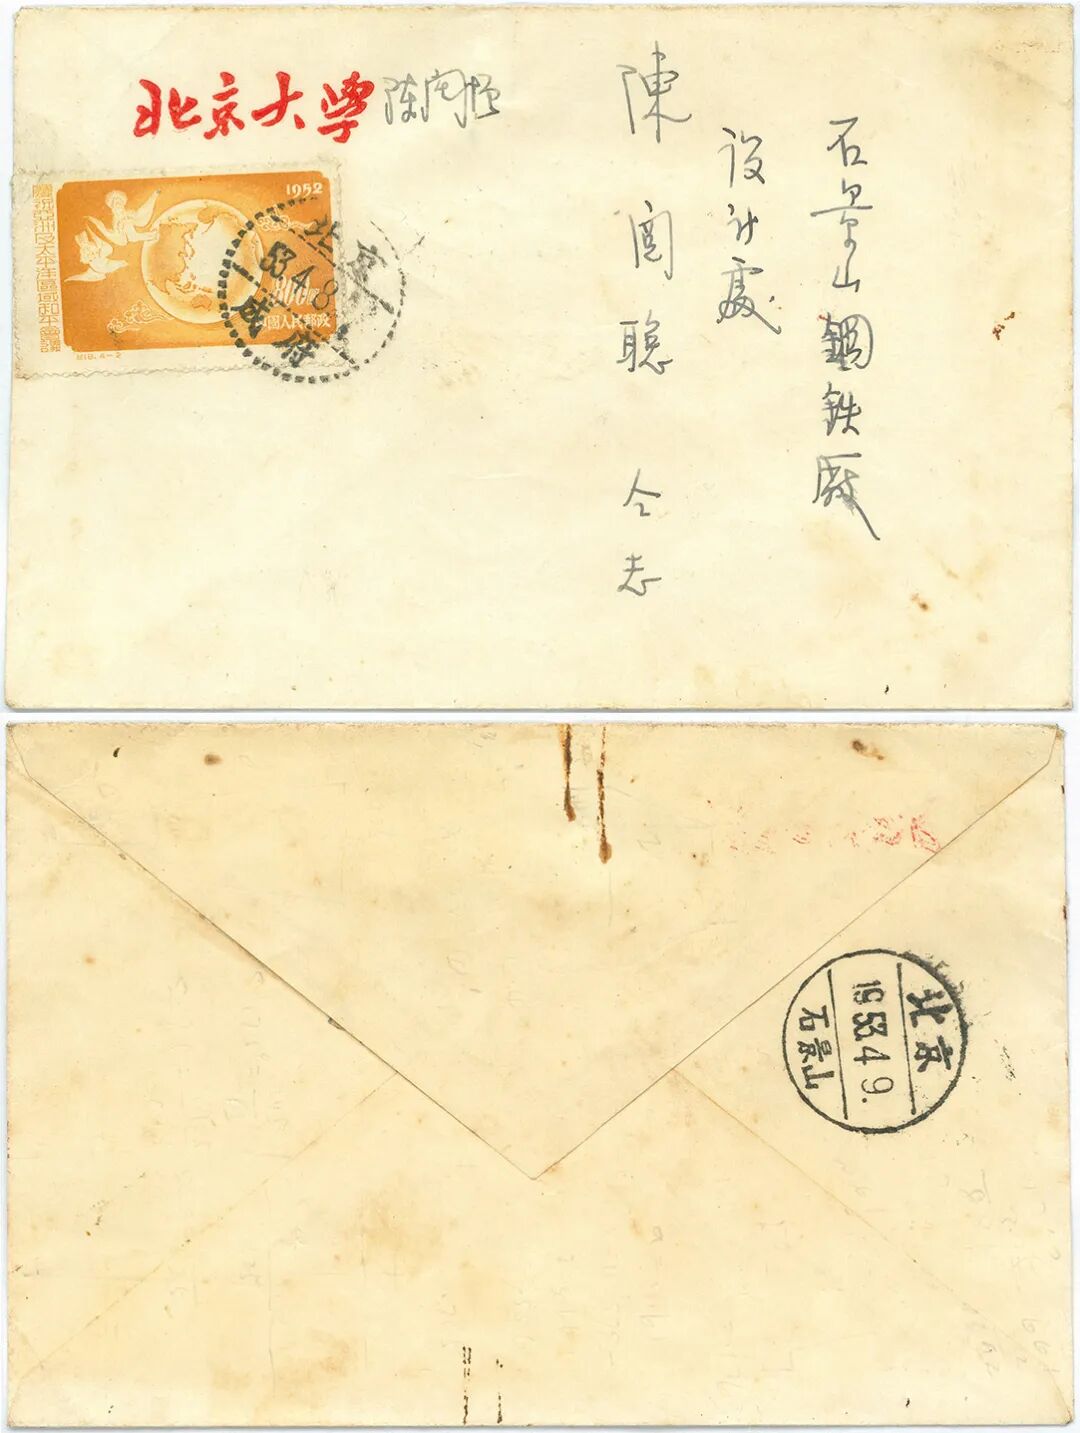 石景山鋼鉄廠
设计處
陳國聰仝志
北京大学 陈
慶祝亞洲及太平洋區域和平會議
1952
800圓
中國人民郵政
紀18.4-2
北京
53.4.8
成府
北京
1953.4.9.
石景山